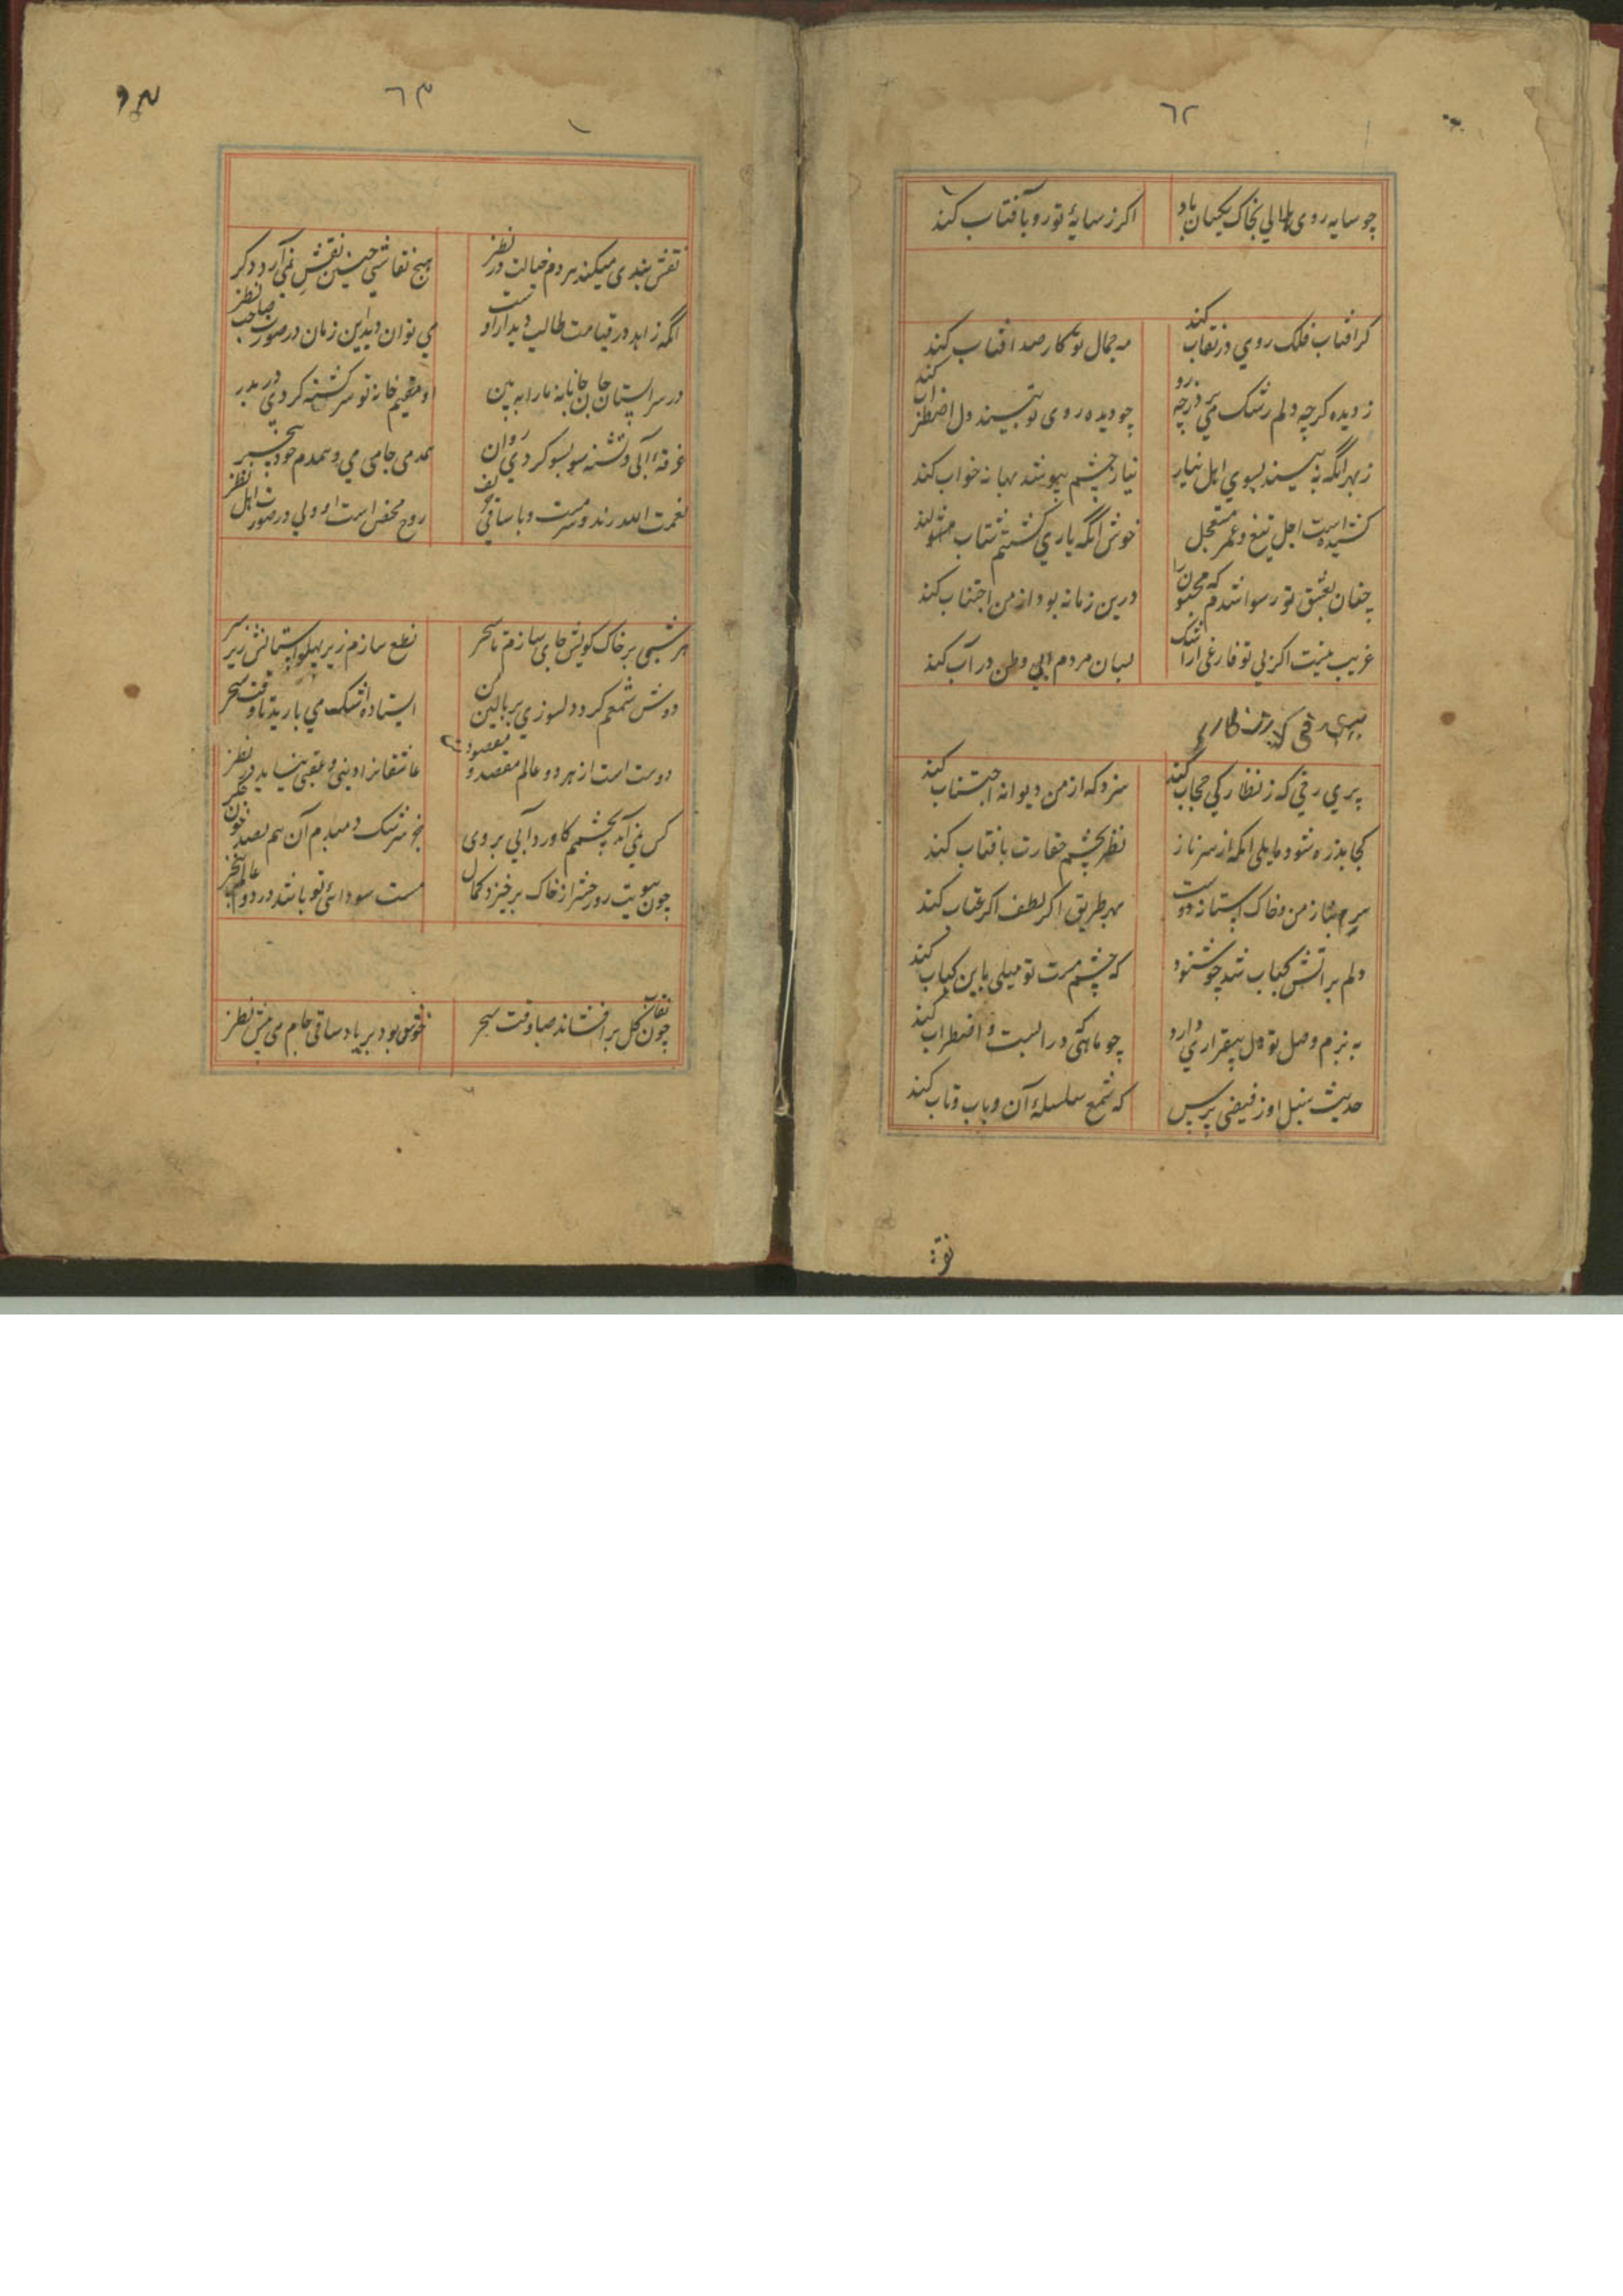 ٦٢
چو سایه روی هلالی بخاک یکسان باد
اکر ز سایهٔ تو رو بآفتاب کند
کر افتاب فلک روي در نقاب کند
مه جمال تو کار صد افتاب کند
ز دیده کرچه دلم رشک می برد چه
چو دیده روی تو بیند دل اضطراب کند
ز بهر انکه نه بیند بسوي اهل نیاز
نیاز چشم بپوشد بهانه خواب کند
کشیده است اجل تیغ و عمر مستعجل
خوش انکه یار بي کشتنم شتاب کند
چنان بعشق تو رسوا شدم که مجنون را
درین زمانه بود از من اجتناب کند
غریب نیست اکر بي تو فارغی از اشک
بسان مردم ابي وطن در آب کند
پري رخی که ز نظارکي حجاب کند
سزد که از من دیوانه اجتناب کند
کجا بذره شود مایل انکه از سر ناز
نظر بچشم حقارت بافتاب کند
سر نیاز من و خاک آستانهٔ دوست
بهر طریق اکر لطف اکر عتاب کند
دلم بر اتش کباب شد چو شنود
که چشم مست تو میلی باین کباب کند
به بزم وصل تو دل بیقراري دارد
چو ماهئی که در ابست و اضطراب کند
حدیث سنبل او ز فیضی پرس
که شمع سلسلهٔ آن و باب و تاب کند
نقش
٦٣
نقش بندی میکند هر دم خیالت در نظر
هیچ نقاشي چنین نقش نمي آرد دکر
انکه زاهد در قیامت طالب دیدار اوست
مي توان دید این زمان در صورت صاحب نظر
در سرابستان جان جانانهٔ ما را به بین
او مقیم خانه تو سرکشته کردي در بدر
غرقهٔ آبی و تشنه سو بسو کردي روان
همدمی جامی مي و همدم خود بیخبر
نعمت الله رند و سرمست و با ساقي
روح محض است او ولي در صورت اهل نظر
هر شبی بر خاک کویش جای سازم تا سحر
نطع سازم زیر پهلو آستانش زیر سر
دوش شمعم کرد دلسوزي بر بالین من
ایستاده اشک مي بارید تا وقت سحر
دوست است از هر دو عالم مقصد و مقصود
عاشقانرا دینی و عقبی نیاید در نظر
کس نمي آید بچشمم کاورد آبي بروی
جز سرشک دمبدم آن هم بصد خون جکر
چون ببویت روز حشر از خاک برخیزد کمال
مست سودائ تو باشد در دو عالم بیخبر
چون نقاب کل بر افشاند صبا وقت سحر
خوش بود بر یاد ساقی جام می پیش نظر